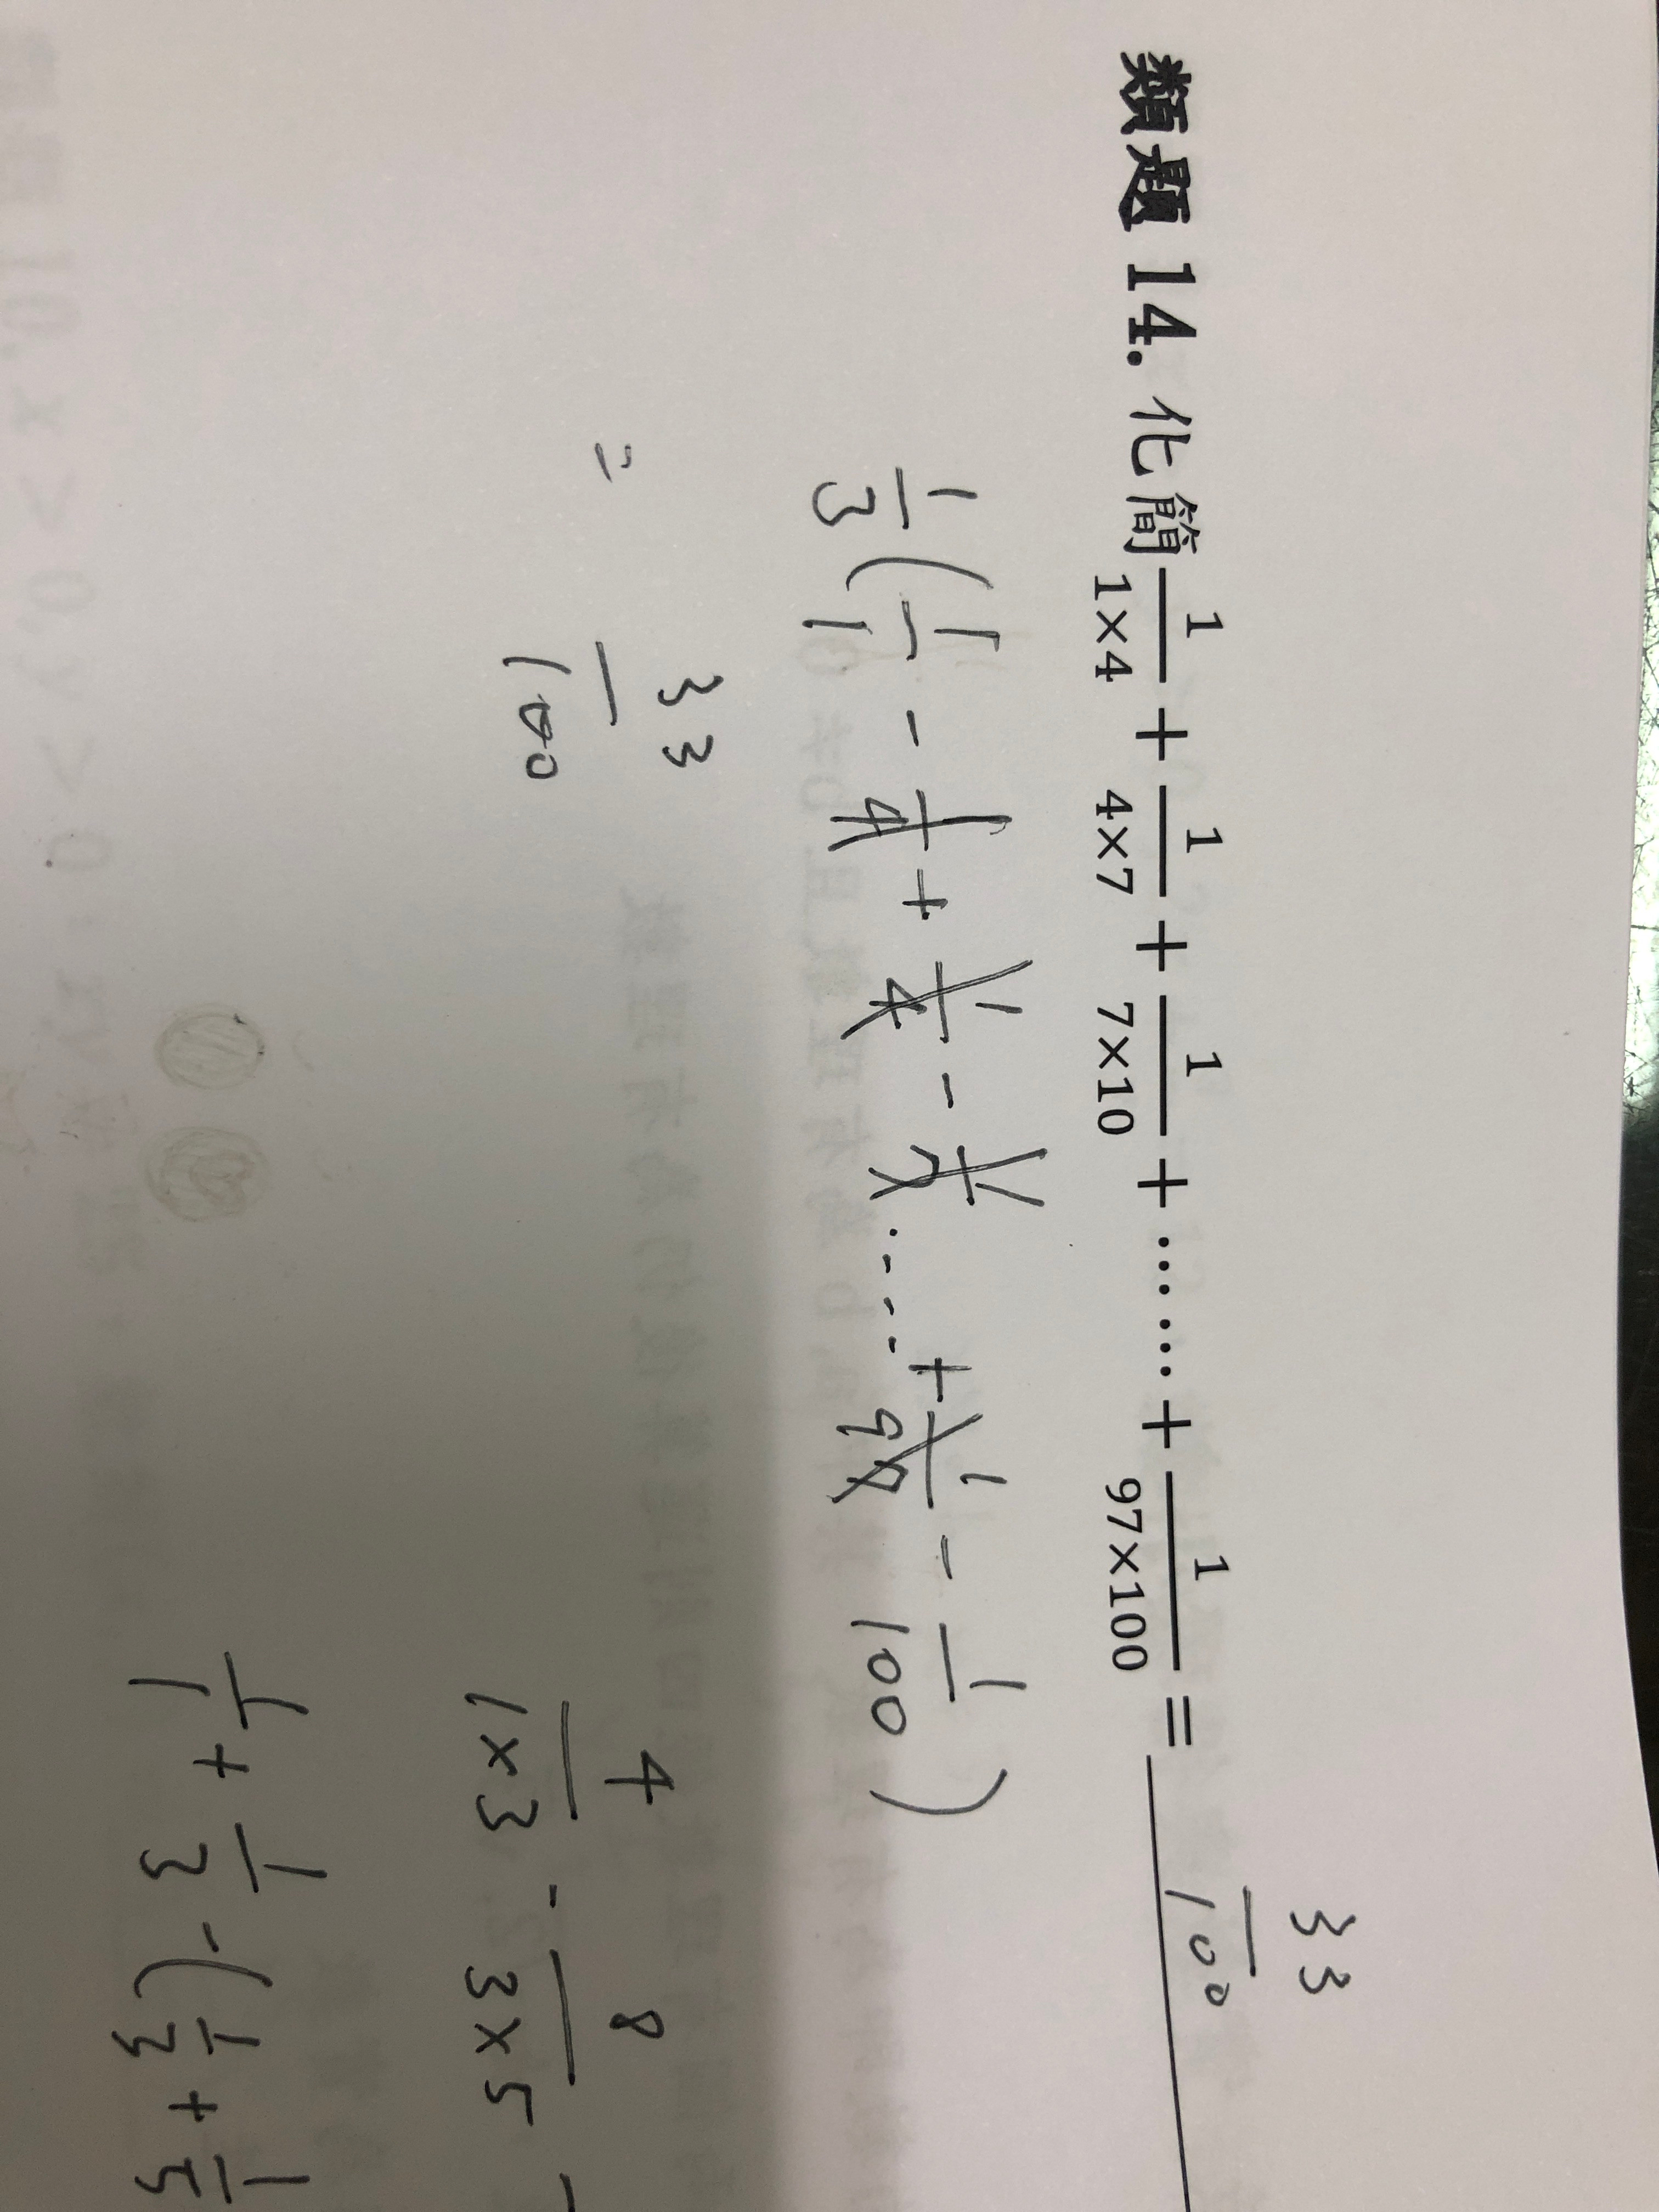 類題 14. 化簡 1/(1×4) + 1/(4×7) + 1/(7×10) + …… + 1/(97×100) = 33/100
1/3 (1/1 - 1/4 + 1/4 - 1/7 ..... + 1/97 - 1/100)
= 33/100
4/(1×3) - 8/(3×5) -
1/1 + 1/3 - (1/3 + 1/5